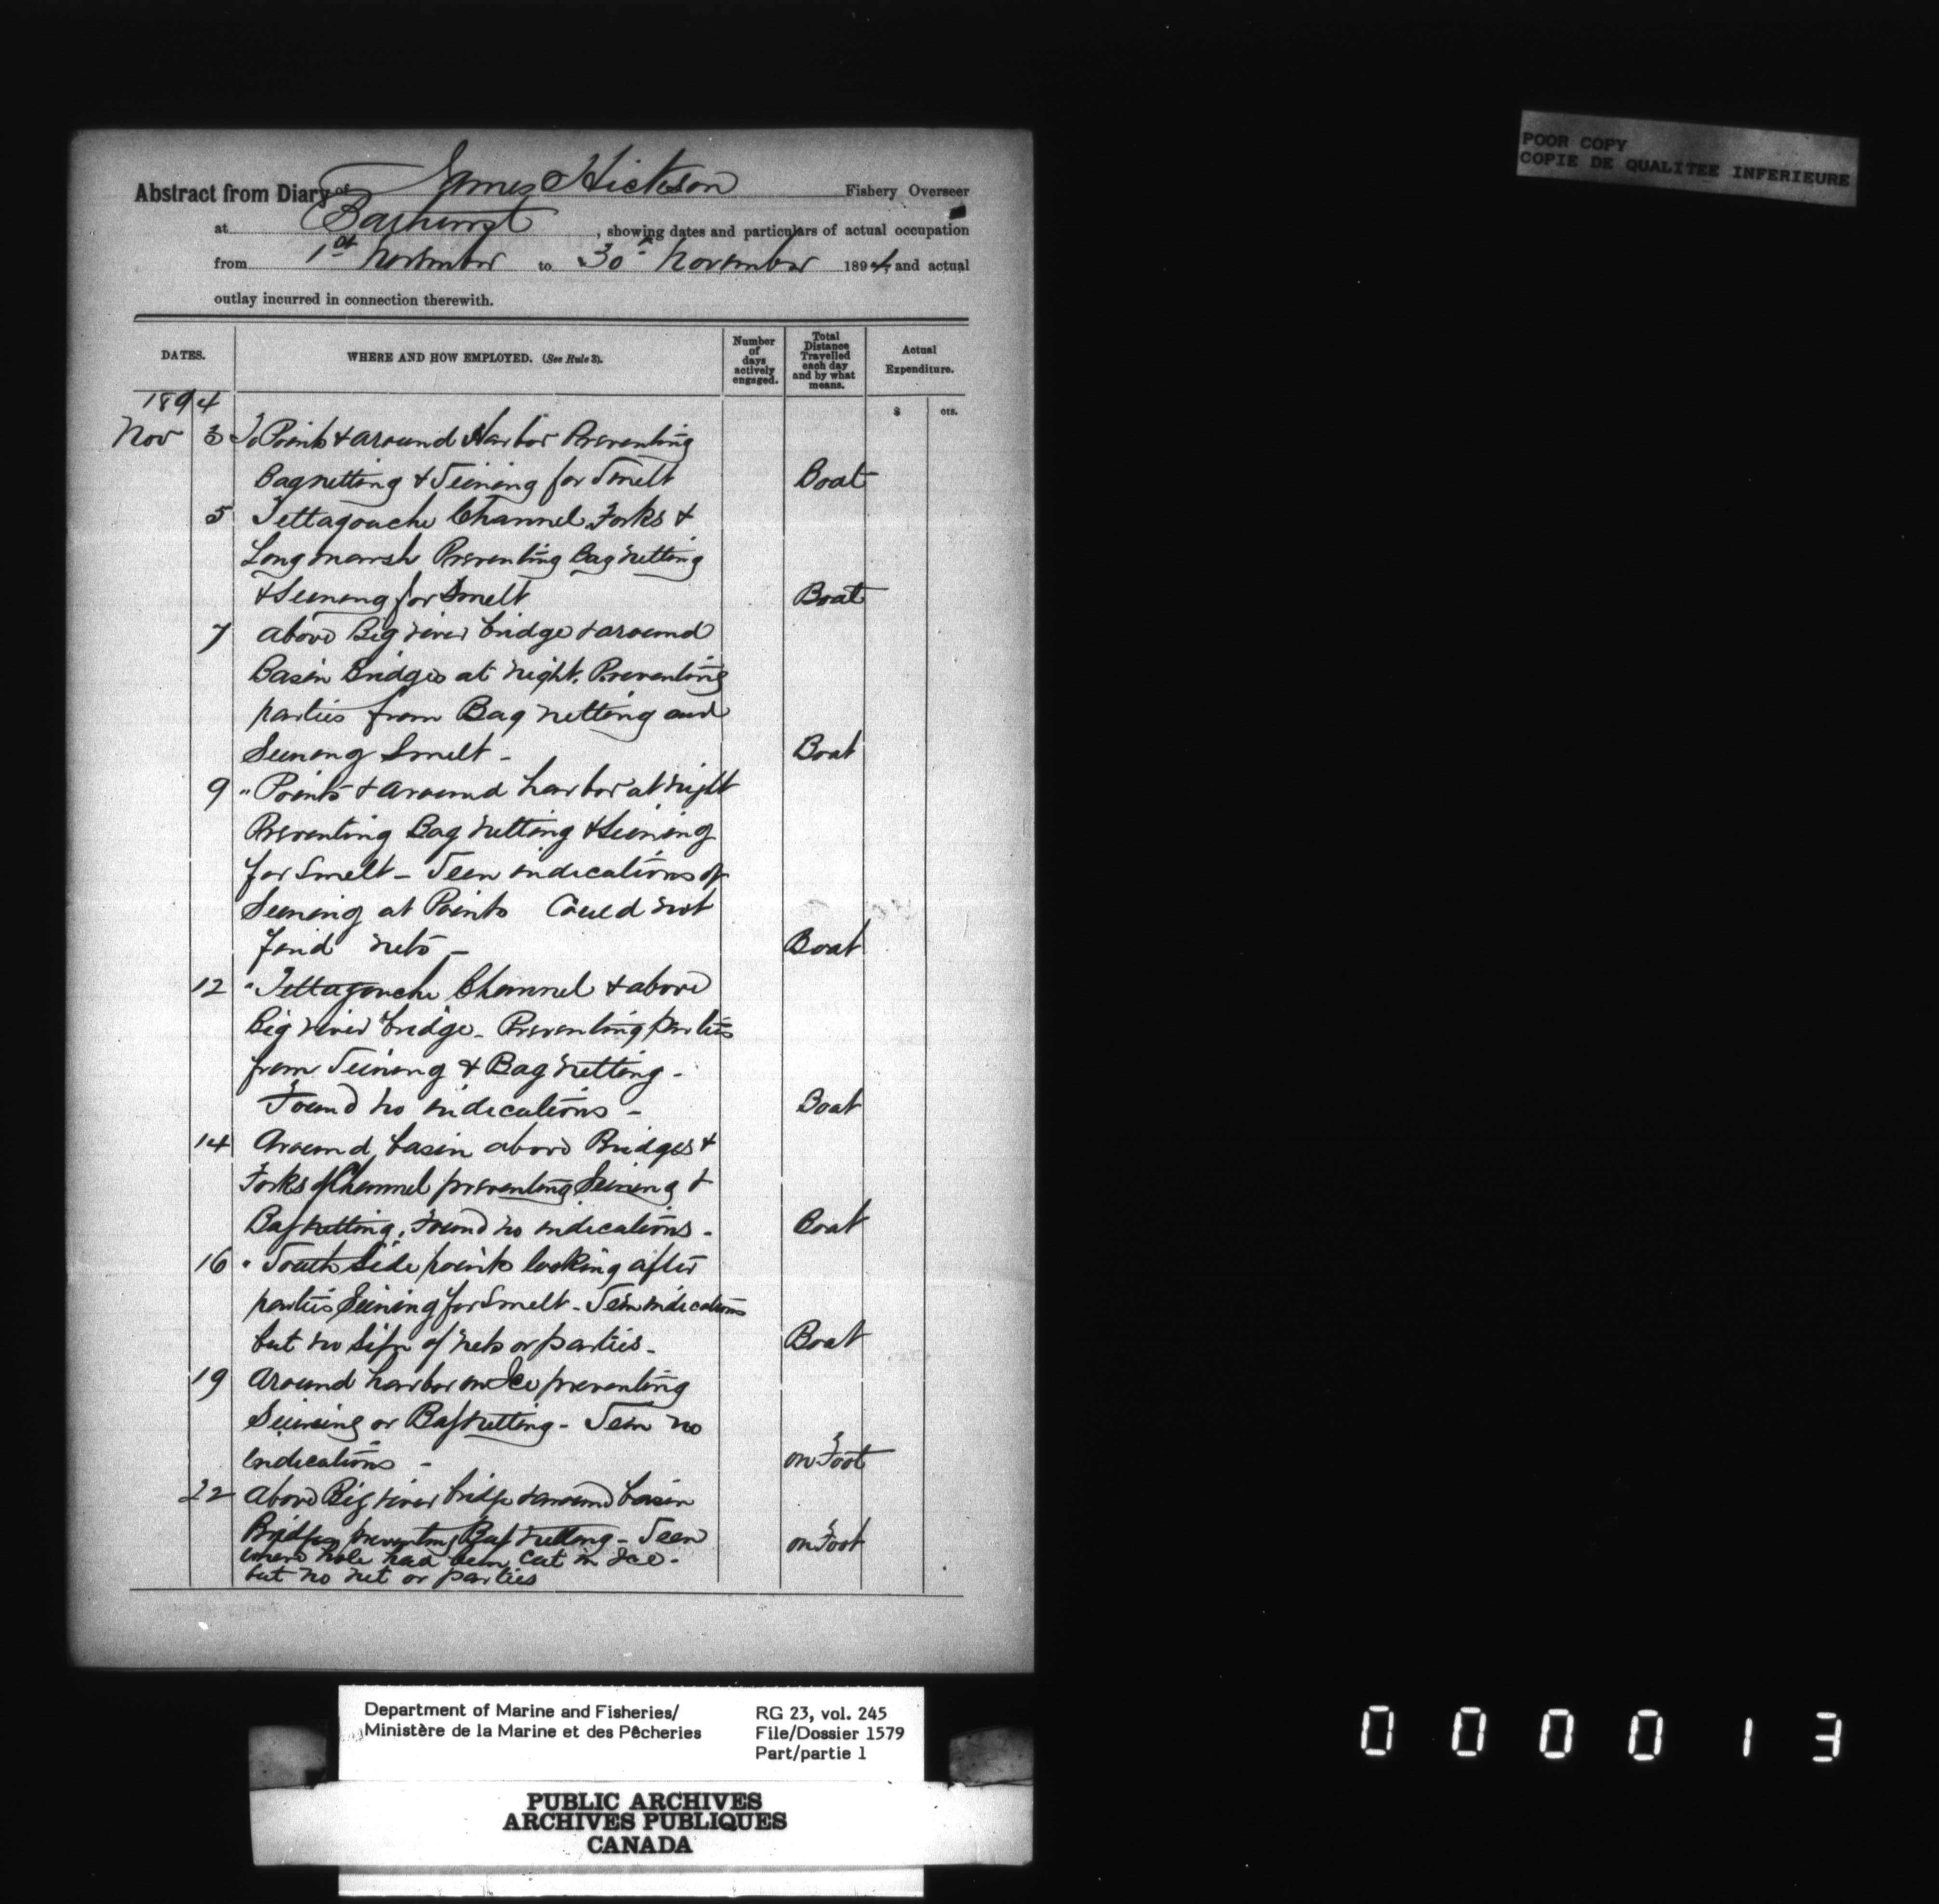 POOR COPY
COPIE DE QUALITEE INFERIEURE
Abstract from Diary of James Hickson Fishery Overseer
at Bathurst, showing dates and particulars of actual occupation
from 1st November to 30th November 1894, and actual
outlay incurred in connection therewith.
DATES.
WHERE AND HOW EMPLOYED. (See Rule 3).
Number of days actively engaged.
Total Distance Travelled each day and by what means.
Actual Expenditure.
$ cts.
1894
Nov 3 To Points & around Harbor Preventing
Bagnetting & Seining for Smelt Boat
5 Tettagouche Channel Forks &
Long marsh Preventing Bag netting
& Seining for Smelt Boat
7 above Big river bridge & around
Basin Bridges at night. Preventing
parties from Bag netting and
Seining Smelt - Boat
9 " Points & around harbor at night
Preventing Bag netting & Seining
for Smelt - Seen indications of
Seining at Points Could not
find nets - Boat
12 " Tettagouche Channel & above
Big river bridge - Preventing parties
from Seining & Bag netting -
Found no indications - Boat
14 Around basin above Bridges &
Forks of Channel preventing Seining &
Bagnetting. Found no indications - Boat
16 " South Side points looking after
parties Seining for Smelt - Seen indications
but no sign of nets or parties - Boat
19 Around harbor on Ice preventing
Seining or Bagnetting - Seen no
indications - on Foot
22 Above Big river bridge & around basin
Bridges preventing Bag netting - Seen
where hole had been cut in Ice - on Foot
but no net or parties
Department of Marine and Fisheries/
Ministère de la Marine et des Pêcheries
RG 23, vol. 245
File/Dossier 1579
Part/partie 1
PUBLIC ARCHIVES
ARCHIVES PUBLIQUES
CANADA
000013